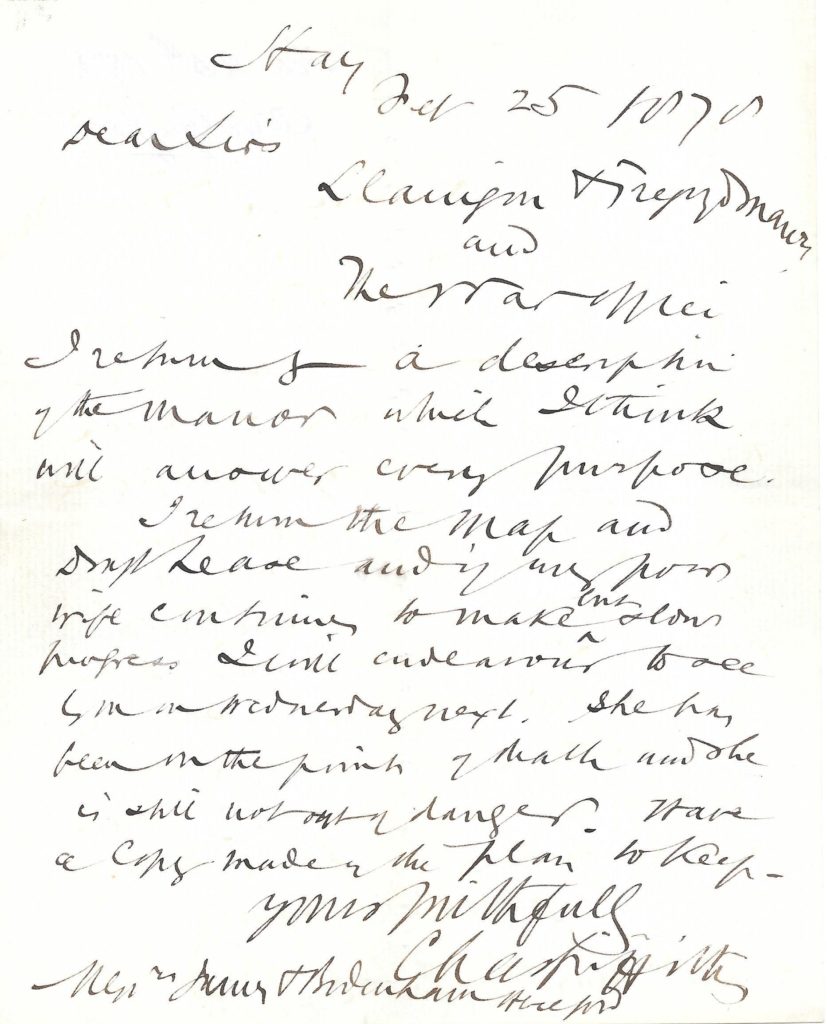 Hay
Feb 25 1878
Dear Sirs
Llanigon & Tregoyd Manors
and
The War Office
I return you a description
of the Manor which I think
will answer every purpose.
I return the Map and
Draft Lease and if my poor
wife continues to make but slow
progress I will endeavour to see
you on Wednesday next. She has
been on the point of death and she
is still not out of danger. Have
a Copy made of the plan to keep –
Yours faithfully
Chas Griffiths
Messrs James & Bodenham
Hereford